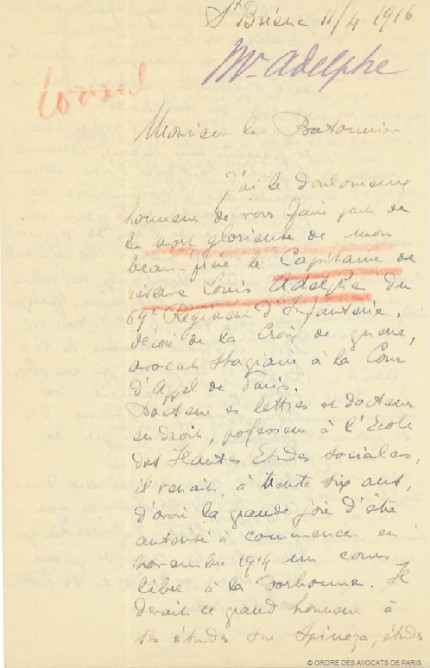 St Brieuc 11/4 1916
Mr Adelphe
Conseil
Monsieur le Batonnier
J'ai le douloureux
honneur de vous faire part de
la mort glorieuse de mon
beau-frère le Capitaine de
réserve Louis Adelphe du
69e Régiment d'Infanterie,
décoré de la Croix de guerre,
avocat stagiaire à la Cour
d'Appel de Paris.
Docteur ès lettres et docteur
en droit, professeur à l'Ecole
des Hautes Etudes Sociales,
il venait, à trente six ans,
d'avoir la grande joie d'être
autorisé à commencer en
novembre 1914 un cours
libre à la Sorbonne. Il
devait ce grand honneur à
ses études sur Spinoza, études
© ORDRE DES AVOCATS DE PARIS